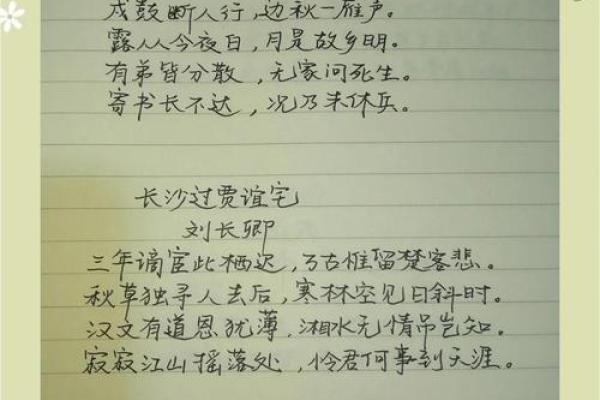 戍鼓断人行，边秋一雁声。
露从今夜白，月是故乡明。
有弟皆分散，无家问死生。
寄书长不达，况乃未休兵。
长沙过贾谊宅
刘长卿
三年谪宦此栖迟，万古惟留楚客悲。
秋草独寻人去后，寒林空见日斜时。
汉文有道恩犹薄，湘水无情吊岂知。
寂寂江山摇落处，怜君何事到天涯。